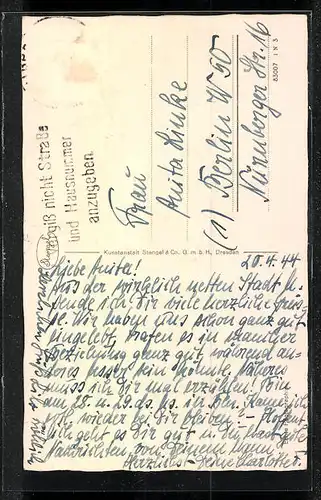 Vergiß nicht Straße
und Hausnummer
anzugeben.
Frau
Anita Linke
(1) Berlin W 50
Nürnberger Str. 16
83007 1 N 3
Kunstanstalt Stengel & Co., G. m. b. H., Dresden
20.4.44
Liebe Anita!
Aus der wirklich netten Stadt
sende ich Dir viele herzliche Grüs-
se. Wir haben uns schon ganz gut
eingelebt, in mancher
Beziehung ganz gut, während an-
deres besser sein könnte. Näheres
muss ich Dir mal erzählen! Bin
am 28. u. 29. ds. Ms. in Bln. Kann ich
wieder bei Dir bleiben? Hoffent-
lich geht es Dir gut u. Du hast gute
Nachrichten von Deinem Mann.
Herzlichst Deine Charlotte.